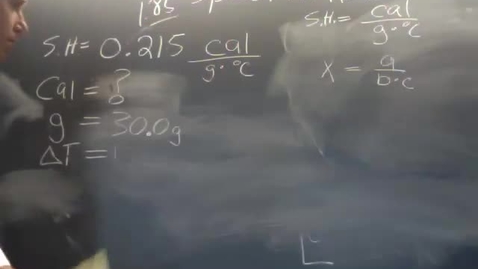 S.H = 0.215 cal/g·°C
Cal = ?
g = 30.0g
ΔT =
S.H. = cal/g·°C
X = a/b·c